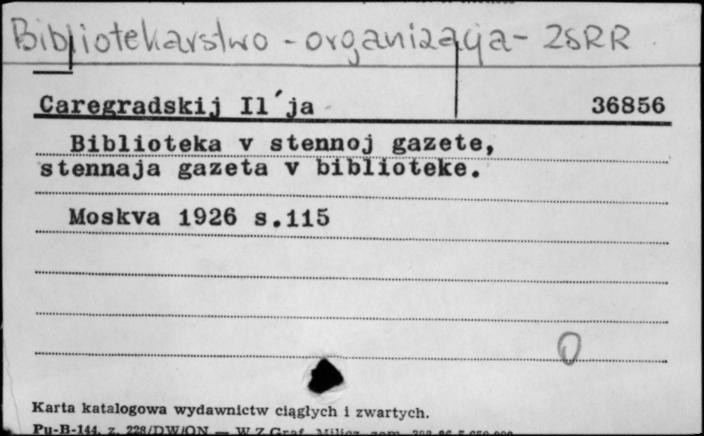 Bibliotekarstwo - organizacja - ZSRR
Caregradskij Il'ja 36856
Biblioteka v stennoj gazete,
stennaja gazeta v biblioteke.
Moskva 1926 s.115
O
Karta katalogowa wydawnictw ciągłych i zwartych.
Pu-B-144. z. 228/DW/ON — W.Z.Graf.